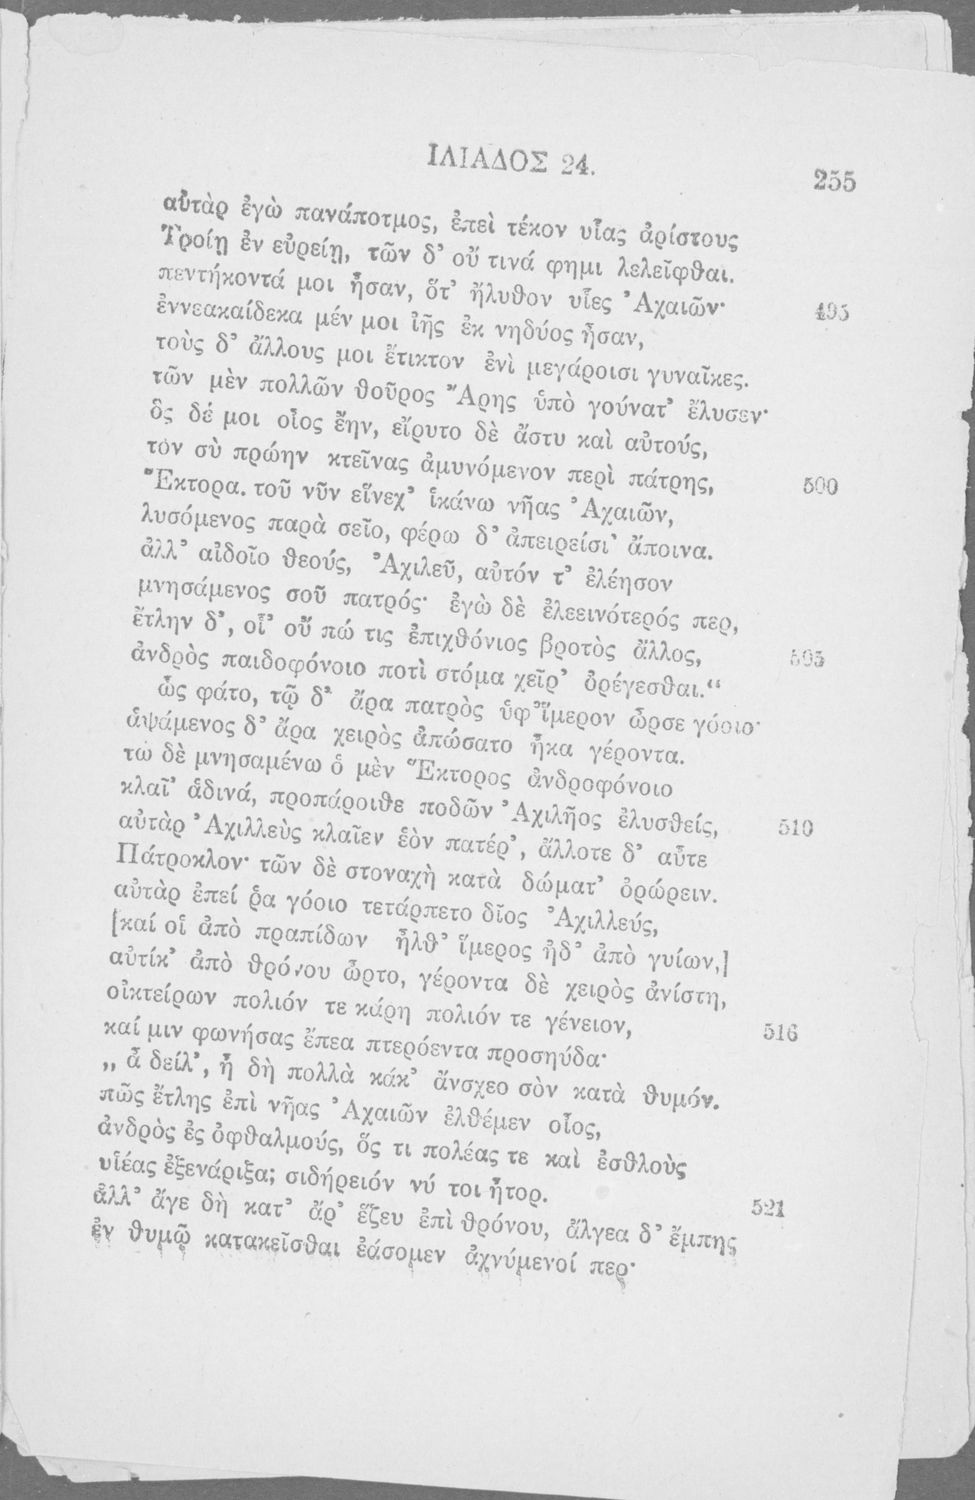 ΙΛΙΑΔΟΣ 24.
255
αὐτὰρ ἐγὼ πανάποτμος, ἐπεὶ τέκον υἷας ἀρίστους
Τροίῃ ἐν εὐρείῃ, τῶν δ' οὔ τινά φημι λελεῖφθαι.
πεντήκοντά μοι ἦσαν, ὅτ' ἤλυθον υἷες Ἀχαιῶν· 495
ἐννεακαίδεκα μέν μοι ἰῆς ἐκ νηδύος ἦσαν,
τοὺς δ' ἄλλους μοι ἔτικτον ἐνὶ μεγάροισι γυναῖκες.
τῶν μὲν πολλῶν θοῦρος Ἄρης ὑπὸ γούνατ' ἔλυσεν·
ὃς δέ μοι οἶος ἔην, εἴρυτο δὲ ἄστυ καὶ αὐτούς,
τὸν σὺ πρώην κτεῖνας ἀμυνόμενον περὶ πάτρης, 500
Ἕκτορα. τοῦ νῦν εἵνεχ' ἱκάνω νῆας Ἀχαιῶν,
λυσόμενος παρὰ σεῖο, φέρω δ' ἀπειρείσι' ἄποινα.
ἀλλ' αἰδοῖο θεούς, Ἀχιλεῦ, αὐτόν τ' ἐλέησον
μνησάμενος σοῦ πατρός· ἐγὼ δὲ ἐλεεινότερός περ,
ἔτλην δ', οἷ' οὔ πώ τις ἐπιχθόνιος βροτὸς ἄλλος, 505
ἀνδρὸς παιδοφόνοιο ποτὶ στόμα χεῖρ' ὀρέγεσθαι.“
ὣς φάτο, τῷ δ' ἄρα πατρὸς ὑφ' ἵμερον ὦρσε γόοιο·
ἁψάμενος δ' ἄρα χειρὸς ἀπώσατο ἦκα γέροντα.
τὼ δὲ μνησαμένω ὁ μὲν Ἕκτορος ἀνδροφόνοιο
κλαῖ' ἁδινά, προπάροιθε ποδῶν Ἀχιλῆος ἐλυσθείς, 510
αὐτὰρ Ἀχιλλεὺς κλαῖεν ἑὸν πατέρ', ἄλλοτε δ' αὖτε
Πάτροκλον· τῶν δὲ στοναχὴ κατὰ δώματ' ὀρώρειν.
αὐτὰρ ἐπεί ῥα γόοιο τετάρπετο δῖος Ἀχιλλεύς,
[καί οἱ ἀπὸ πραπίδων ἦλθ' ἵμερος ἠδ' ἀπὸ γυίων,]
αὐτίκ' ἀπὸ θρόνου ὦρτο, γέροντα δὲ χειρὸς ἀνίστη,
οἰκτείρων πολιόν τε κάρη πολιόν τε γένειον, 516
καί μιν φωνήσας ἔπεα πτερόεντα προσηύδα·
„ ἆ δείλ', ἦ δὴ πολλὰ κάκ' ἄνσχεο σὸν κατὰ θυμόν.
πῶς ἔτλης ἐπὶ νῆας Ἀχαιῶν ἐλθέμεν οἶος,
ἀνδρὸς ἐς ὀφθαλμούς, ὅς τι πολέας τε καὶ ἐσθλοὺς
υἱέας ἐξενάριξα; σιδήρειόν νύ τοι ἦτορ. 521
ἀλλ' ἄγε δὴ κατ' ἄρ' ἕζευ ἐπὶ θρόνου, ἄλγεα δ' ἔμπης
ἐν θυμῷ κατακεῖσθαι ἐάσομεν ἀχνύμενοί περ·